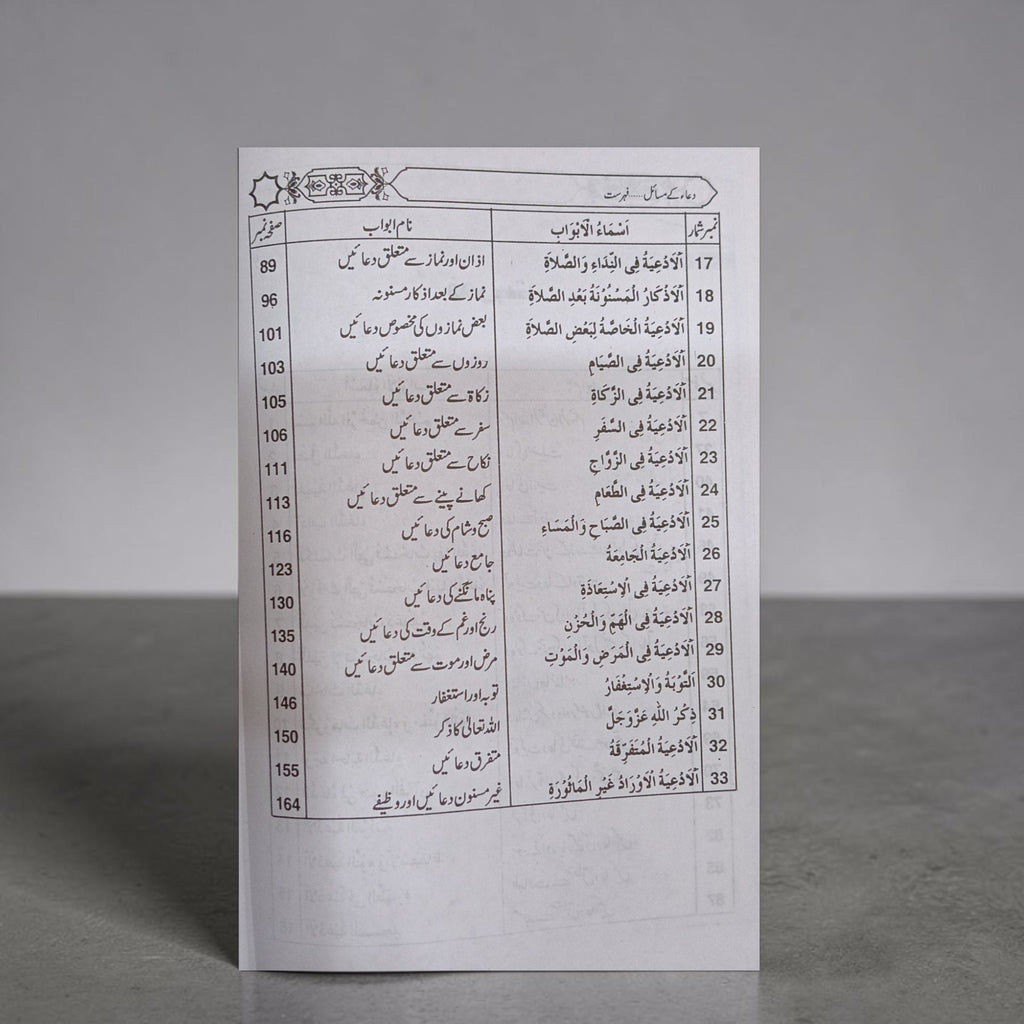 دعاء کے مسائل......فہرست
نمبر شمار اَسْمَاءُ الْاَبْوَابِ نام ابواب صفحہ نمبر
17 اَلْاَدْعِيَةُ فِي النِّدَاءِ وَالصَّلاَةِ اذان اور نماز سے متعلق دعائیں 89
18 اَلْاَذْكَارُ الْمَسْنُوْنَةُ بَعْدِ الصَّلاَةِ نماز کے بعد اذکار مسنونہ 96
19 اَلْاَدْعِيَةُ الْخَاصَّةُ لِبَعْضِ الصَّلاَةِ بعض نمازوں کی مخصوص دعائیں 101
20 اَلْاَدْعِيَةُ فِي الصِّيَامِ روزوں سے متعلق دعائیں 103
21 اَلْاَدْعِيَةُ فِي الزَّكَاةِ زکاۃ سے متعلق دعائیں 105
22 اَلْاَدْعِيَةُ فِي السَّفَرِ سفر سے متعلق دعائیں 106
23 اَلْاَدْعِيَةُ فِي الزَّوَّاجِ نکاح سے متعلق دعائیں 111
24 اَلْاَدْعِيَةُ فِي الطَّعَامِ کھانے پینے سے متعلق دعائیں 113
25 اَلْاَدْعِيَةُ فِي الصَّبَاحِ وَالْمَسَاءِ صبح و شام کی دعائیں 116
26 اَلْاَدْعِيَةُ الْجَامِعَةُ جامع دعائیں 123
27 اَلْاَدْعِيَةُ فِي الْاِسْتِعَاذَةِ پناہ مانگنے کی دعائیں 130
28 اَلْاَدْعِيَةُ فِي الْهَمِّ وَالْحُزْنِ رنج اور غم کے وقت کی دعائیں 135
29 اَلْاَدْعِيَةُ فِي الْمَرَضِ وَالْمَوْتِ مرض اور موت سے متعلق دعائیں 140
30 اَلتَّوْبَةُ وَالْاِسْتِغْفَارُ توبہ اور استغفار 146
31 ذِكْرُ اللهِ عَزَّوَجَلَّ اللہ تعالیٰ کا ذکر 150
32 اَلْاَدْعِيَةُ الْمُتَفَرِّقَةُ متفرق دعائیں 155
33 اَلْاَدْعِيَةُ الْاَوْرَادُ غَيْرِ الْمَاثُوْرَةِ غیر مسنون دعائیں اور وظیفے 164